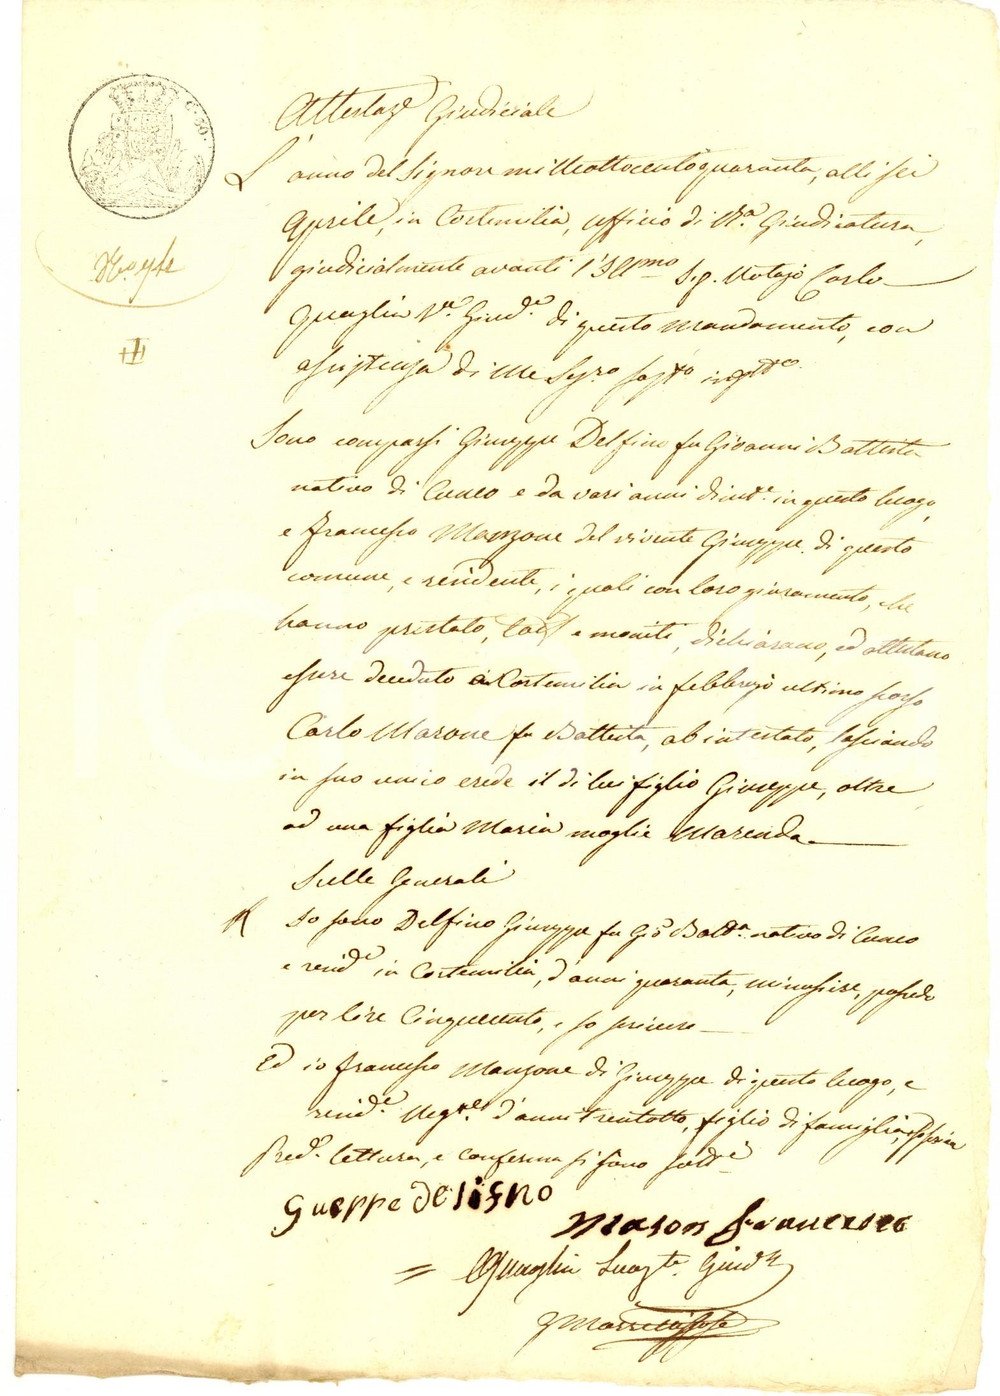 C. 50.
Attestaz.e Giudiciale
L'anno del Signore mille ottocento quaranta, alli sei
Aprile, in Cortemilia, ufficio di R.a Giudicatura,
giudicialmente avanti l'Ill.mo Sig. Notajo Carlo
Quaglia Giud.e di questo Mandamento, con
assistenza di me Seg.ro sott.o
Sono comparsi Giuseppe Delfino fu Gioanni Battista
nativo di Cuneo e da vari anni resid.e in questo luogo,
e Francesco Manzone del vivente Giuseppe di questo
comune, e residente, i quali con loro giuramento, che
hanno prestato, e moniti, dichiarano, ed attestano
essere deceduto a Cortemilia in febbrajo ultimo scorso
Carlo Marone fu Battista, ab intestato, lasciando
in suo unico erede il di lui figlio Giuseppe, oltre
ad una figlia Maria moglie Marenda
Sulle Generali
R Io sono Delfino Giuseppe fu Gio Batt.a nativo di Cuneo
e resid.e in Cortemilia, d'anni quaranta, possedo
per lire Cinquecento, e so scrivere
Ed io Francesco Manzone di Giuseppe di questo luogo, e
resid.e Neg.te d'anni trentotto, figlio di famiglia,
Pred.a lettura, e conferma si sono sott.i
Guseppe Delfino
Mason Francesco
= Quaglia Giud.e